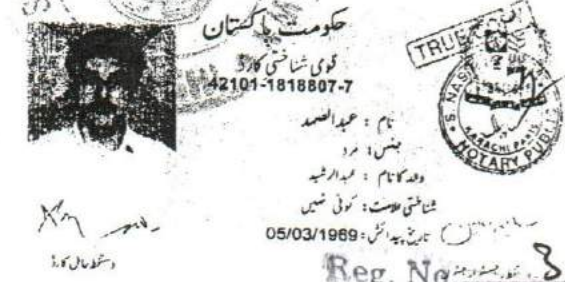 حکومت پاکستان
قومی شناختی کارڈ
42101-1818807-7
نام : عبدالصمد
جنس : مرد
والد کا نام : عبدالرشید
شناختی علامت : کوئی نہیں
تاریخ پیدائش : 05/03/1969
دستخط حامل کارڈ
Reg. No
TRUE
KARACHI PAKIS
NOTARY PUBLIC